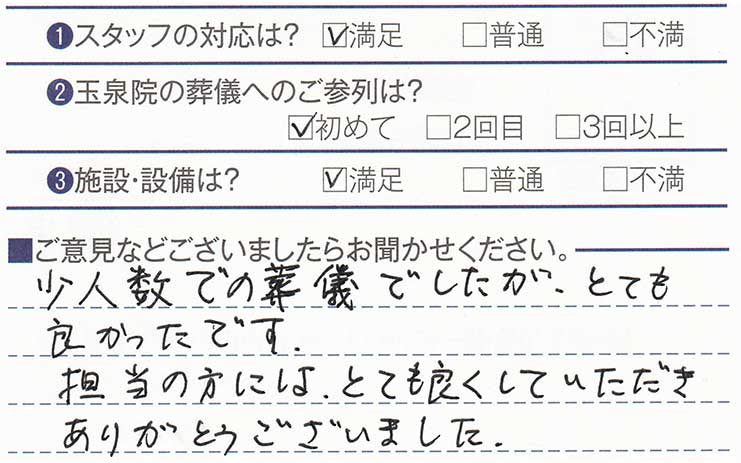 ❶スタッフの対応は? ☑満足 □普通 □不満
❷玉泉院の葬儀へのご参列は?
☑初めて □2回目 □3回以上
❸施設・設備は? ☑満足 □普通 □不満
■ご意見などございましたらお聞かせください。
少人数での葬儀でしたが、とても
良かったです。
担当の方には、とても良くしていただき
ありがとうございました。